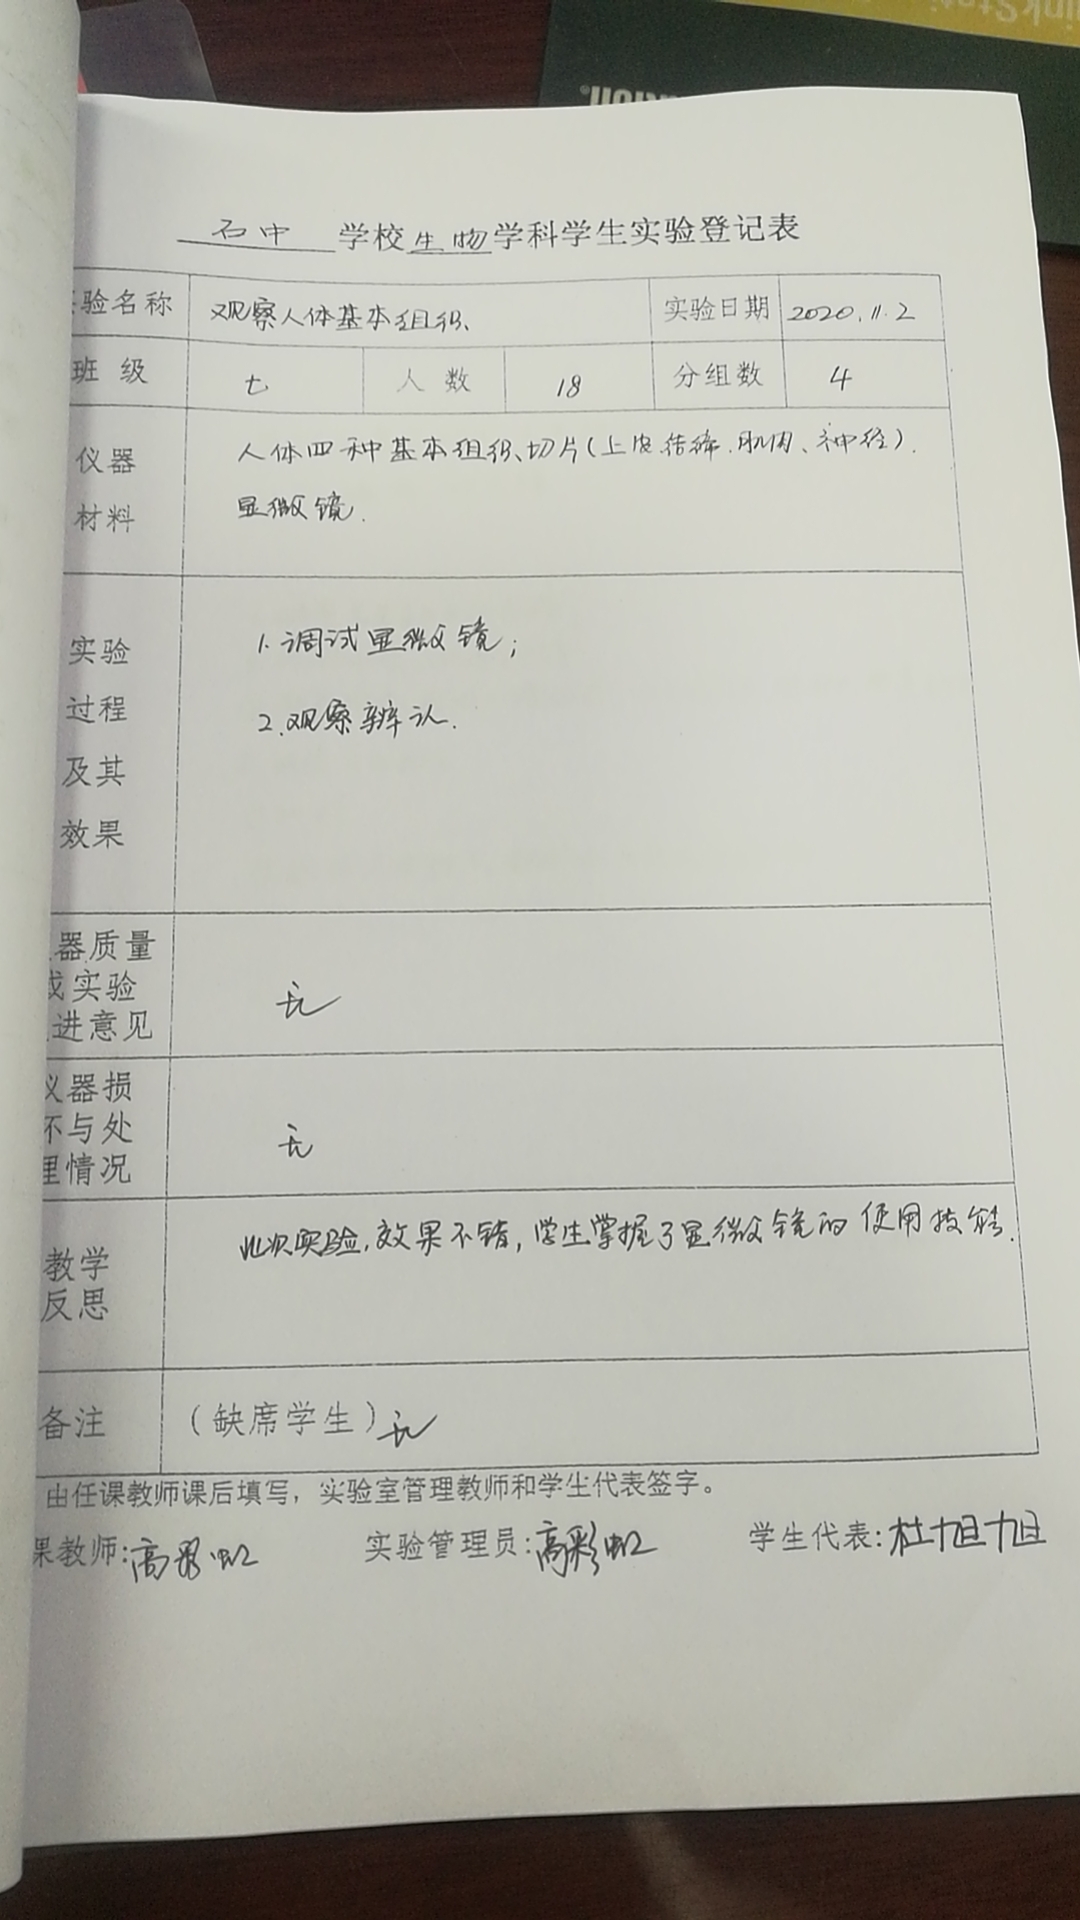 石中 学校生物学科学生实验登记表
验名称 观察人体基本组织 实验日期 2020.11.2
班级 七 人数 18 分组数 4
仪器 人体四种基本组织切片(上皮.结缔.肌肉、神经).
材料 显微镜.
实验 1.调试显微镜;
过程 2.观察辨认.
及其
效果
器质量
或实验 无
进意见
仪器损
坏与处 无
理情况
教学 此次实验,效果不错,学生掌握了显微镜的使用技能.
反思
备注 (缺席学生)无
由任课教师课后填写，实验室管理教师和学生代表签字。
课教师:高彩虹 实验管理员:高彩虹 学生代表:杜旭旭